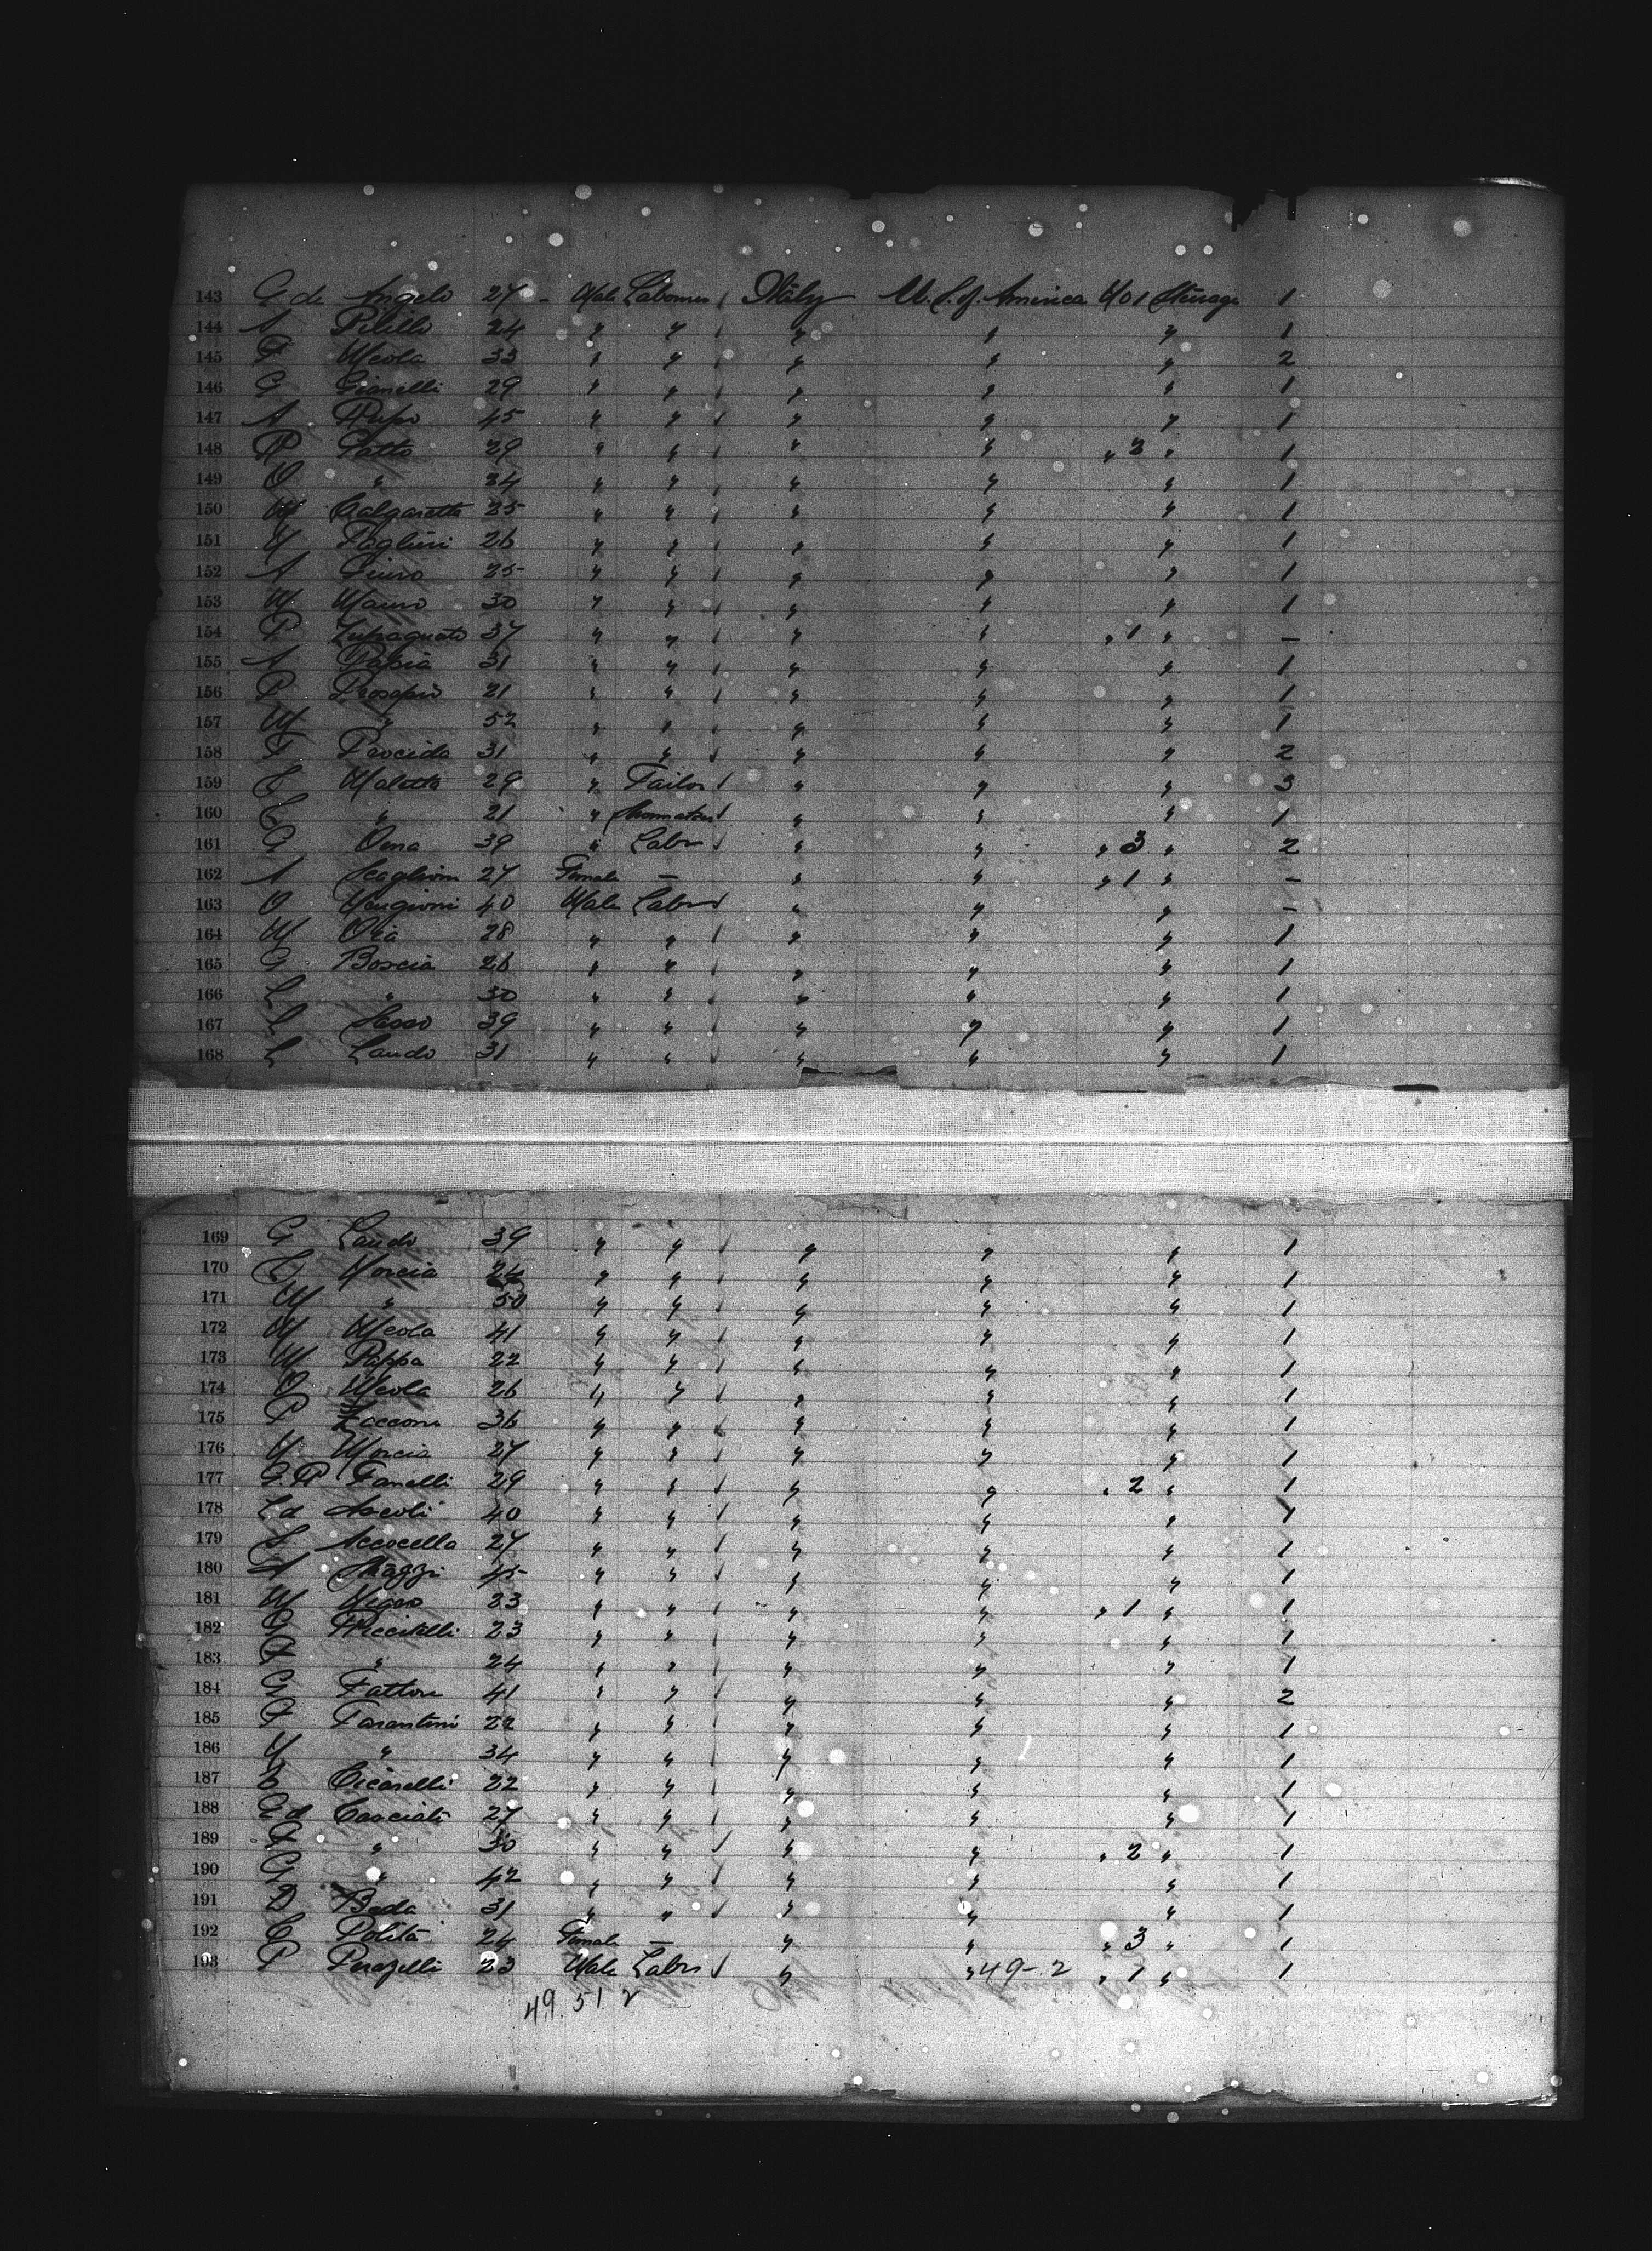 143 G de Angelo 27 - Male Labourer Italy U.S. of America No 1 Steerage 1
144 A Pilillo 24 " " " " " 1
145 F Meola 33 " " " " " 2
146 G Gianelli 29 " " " " " 1
147 A Pupo 45 " " " " " 1
148 R Gatto 29 " " " " " 2 " 1
149 O " 34 " " " " " 1
150 M Calgaretta 25 " " " " " 1
151 N Paglini 26 " " " " " 1
152 A 25 " " " " " 1
153 M Mauro 30 " " " " " 1
154 P 37 " " " " " 1 " -
155 A Papia 31 " " " " " 1
156 P Prosapio 21 " " " " " 1
157 M " 52 " " " " " 1
158 F Procida 31 " " " " " 2
159 Maletta 29 " Tailor " " " 3
160 " 21 " Shoemaker " " " 1
161 G 39 " Labr " " " 3 " 2
162 A Scaglioni 27 Female - " " " 1 " -
163 O Mangioni 40 Male Labr " " " -
164 M 28 " " " " " 1
165 G Boscia 26 " " " " " 1
166 L " 30 " " " " " 1
167 L Sasso 39 " " " " " 1
168 L Lando 31 " " " " " 1
169 G Lando 39 " " " " " 1
170 Morcia 24 " " " " " 1
171 M " 50 " " " " " 1
172 M Meola 41 " " " " " 1
173 M Pappa 22 " " " " " 1
174 O Meola 26 " " " " " 1
175 P Zaccone 36 " " " " " 1
176 N Morcia 27 " " " " " 1
177 G.R Fanelli 29 " " " " " 2 " 1
178 C d Ascoli 40 " " " " " 1
179 S Accocella 27 " " " " " 1
180 A Maggi 45 " " " " " 1
181 M Nigro 23 " " " " " 1 " 1
182 G Riccitelli 23 " " " " " 1
183 F " 24 " " " " " 1
184 G Fattore 41 " " " " " 2
185 F Tarantini 22 " " " " " 1
186 N " 34 " " " " " 1
187 C Cicarelli 22 " " " " " 1
188 G d Casciati 27 " " " " " 1
189 F " 30 " " " " " 2 " 1
190 G " 42 " " " " " 1
191 D Beda 31 " " " " " 1
192 C Polita 24 Female - " " " 3 " 1
193 P Perazelli 23 Male Labr " " 49-2 " 1 " 1
49 51 2